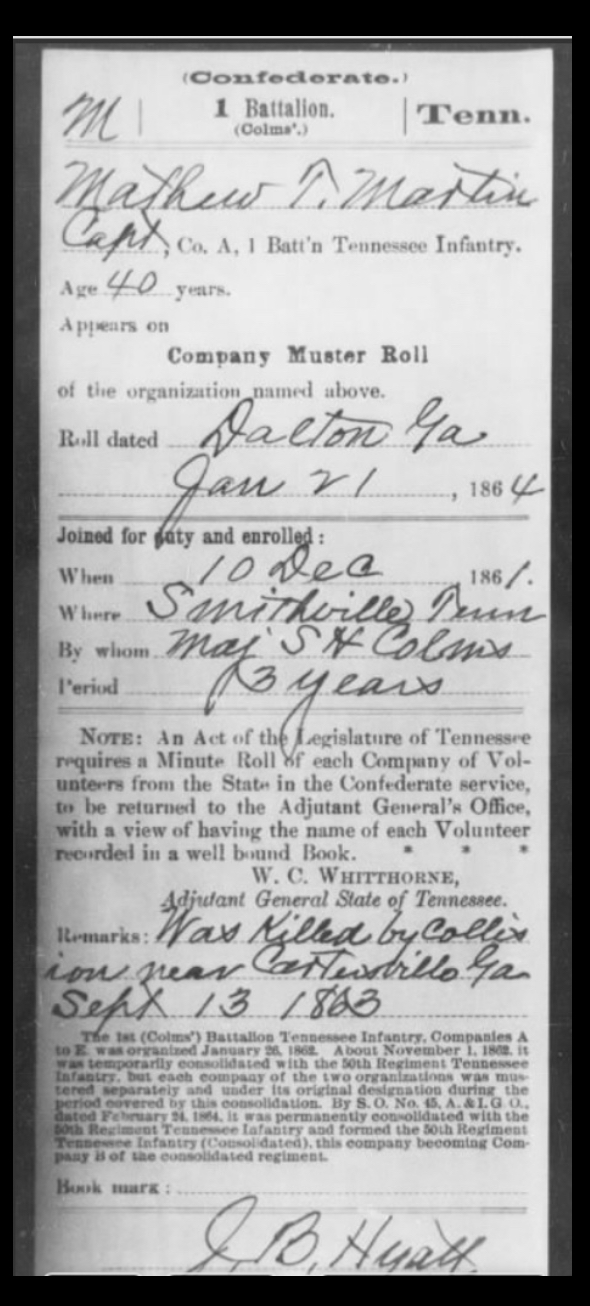 (Confederate.)
M | 1 Battalion. | Tenn.
(Colms'.)
Mathew T. Martin
Capt, Co. A, 1 Batt'n Tennessee Infantry.
Age 40 years.
Appears on
Company Muster Roll
of the organization named above.
Roll dated Dalton Ga
Jan 21, 1864
Joined for duty and enrolled:
When 10 Dec 1861.
Where Smithville, Tenn
By whom Maj S H Colms
Period 3 years
NOTE: An Act of the Legislature of Tennessee
requires a Minute Roll of each Company of Vol-
unteers from the State in the Confederate service,
to be returned to the Adjutant General's Office,
with a view of having the name of each Volunteer
recorded in a well bound Book. * * *
W. C. WHITTHORNE,
Adjutant General State of Tennessee.
Remarks: Was Killed by Collis
ion near Cartersville Ga
Sept 13 1863
The 1st (Colms') Battalion Tennessee Infantry, Companies A
to E, was organized January 26, 1862. About November 1, 1862, it
was temporarily consolidated with the 50th Regiment Tennessee
Infantry, but each company of the two organizations was mus-
tered separately and under its original designation during the
period covered by this consolidation. By S. O. No. 45, A. & I. G. O.,
dated February 24, 1864, it was permanently consolidated with the
50th Regiment Tennessee Infantry and formed the 50th Regiment
Tennessee Infantry (Consolidated), this company becoming Com-
pany B of the consolidated regiment.
Book mark:
J. B. Hyatt